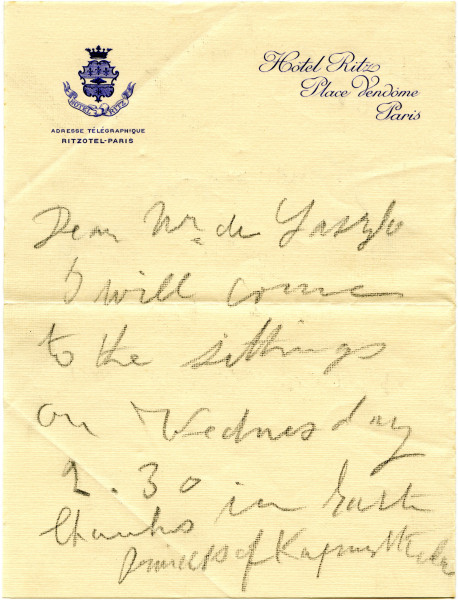 HOTEL RITZ
ADRESSE TÉLÉGRAPHIQUE
RITZOTEL-PARIS
Hôtel Ritz
Place Vendôme
Paris
Dear Mr. de Laszlo
I will come
to the sittings
on Wednesday
2.30 in
thanks
Princess of Kapurthala